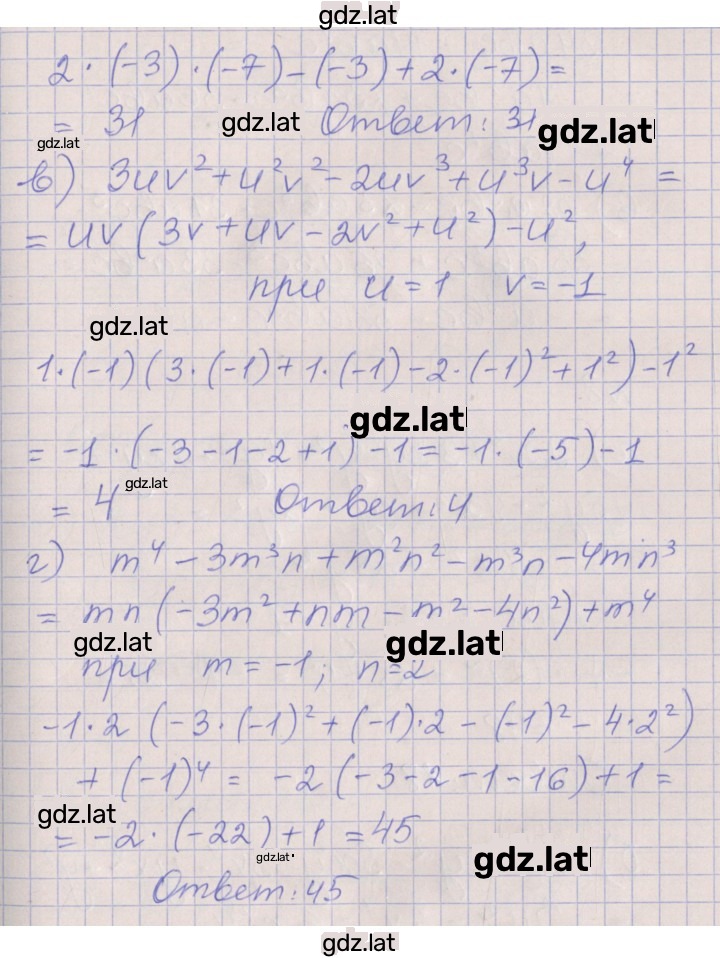 gdz.lat
2·(-3)·(-7)-(-3)+2·(-7)=
= 31 gdz.lat Ответ: 31 gdz.lat
gdz.lat
в) 3uv²+u²v²-2uv³+u³v-u⁴ =
= uv(3v+uv-2v²+u²)-u²,
при u=1 v=-1
gdz.lat
1·(-1)(3·(-1)+1·(-1)-2·(-1)²+1²)-1²
gdz.lat
= -1·(-3-1-2+1)-1=-1·(-5)-1
= 4 gdz.lat Ответ: 4
г) m⁴-3m³n+m²n²-m³n-4mn³
= mn(-3m²+nm-m²-4n²)+m⁴
gdz.lat gdz.lat
при m=-1; n=2
-1·2(-3·(-1)²+(-1)·2-(-1)²-4·2²)
+(-1)⁴= -2(-3-2-1-16)+1=
gdz.lat
= -2·(-22)+1=45
gdz.lat gdz.lat
Ответ: 45
gdz.lat